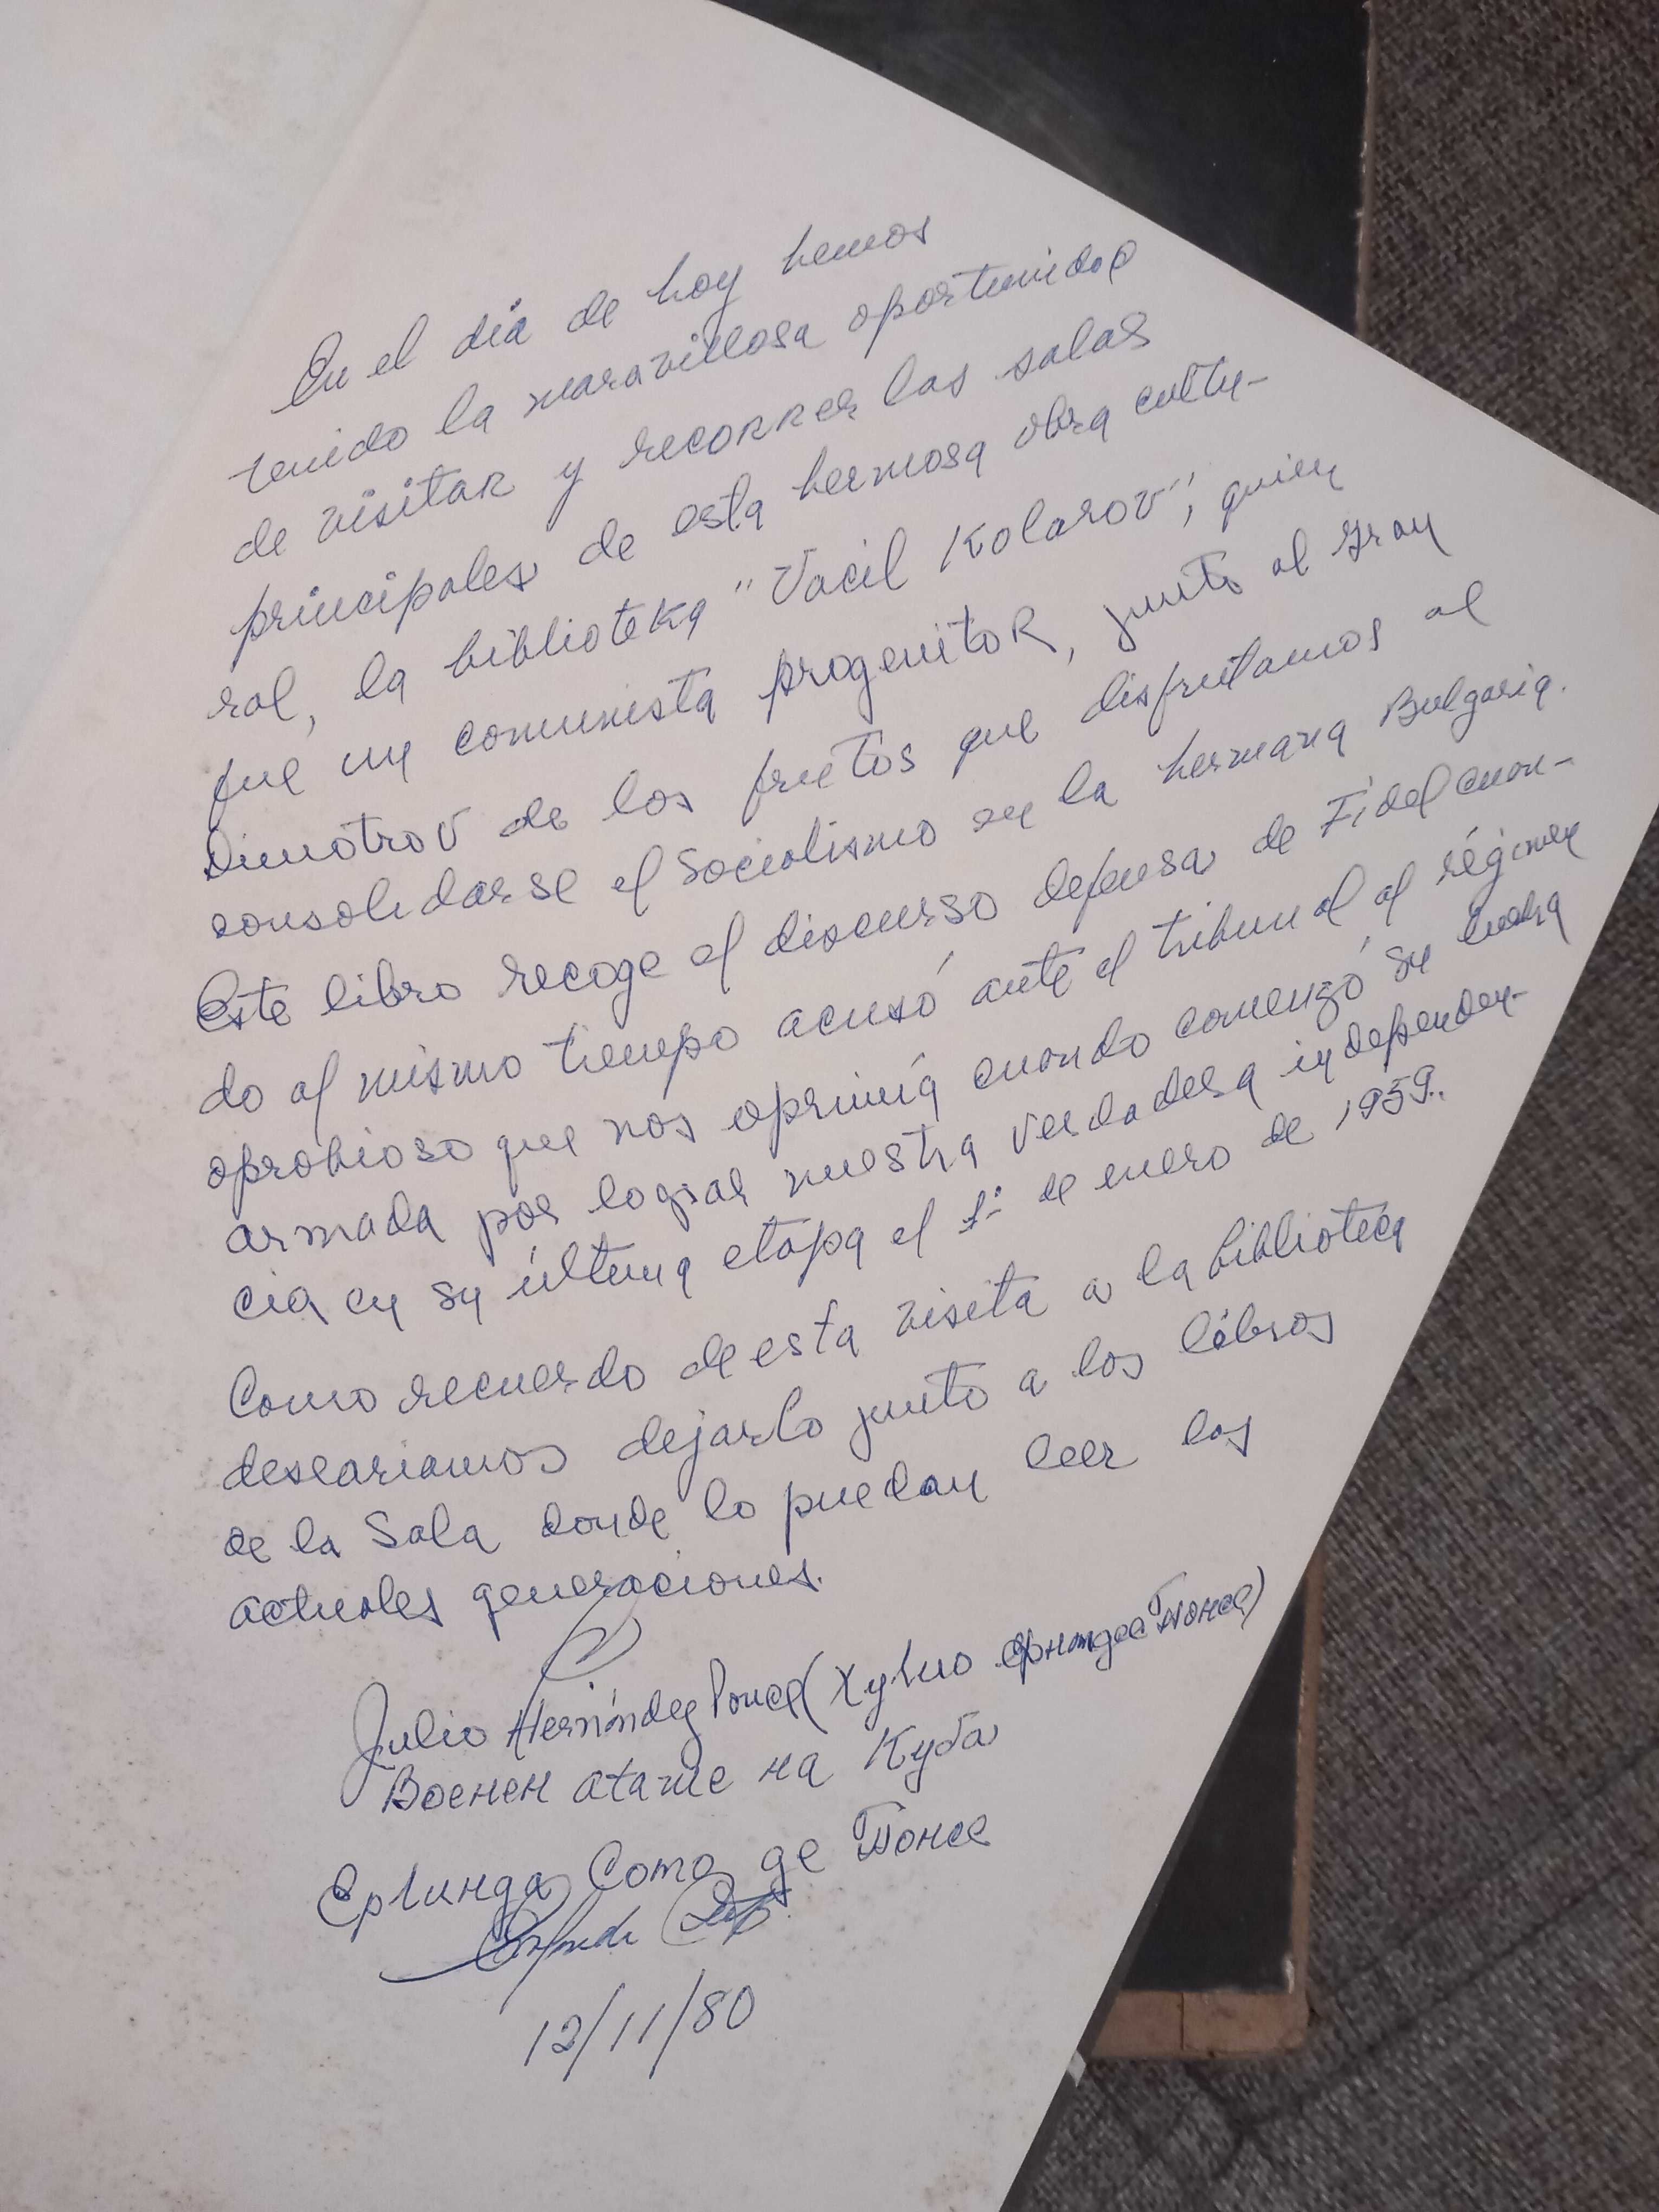 En el día de hoy hemos
tenido la maravillosa oportunidad
de visitar y recorrer las salas
principales de esta hermosa obra cultu-
ral, la biblioteka "Vacil Kolarov", quien
fué un comunista progenitor, junto al gran
Dimotrov de los frutos que disfrutamos al
consolidarse el Socialismo en la hermana Bulgaria.
Este libro recoge el discurso defensa de Fidel cuan-
do al mismo tiempo acusó ante el tribunal al régimen
oprobioso que nos oprimía cuando comenzó su lucha
armada por lograr nuestra verdadera independen-
cia en su última etapa el 1º de enero de 1959.
Como recuerdo de esta visita a la biblioteca
desearíamos dejarlo junto a los libros
de la Sala donde lo puedan leer las
actuales generaciones.
Julio Hernández Ponce (Хулио Ернандес Понсе)
Военен аташе на Куба
Ерлинда Сото де Понсе
12/11/80